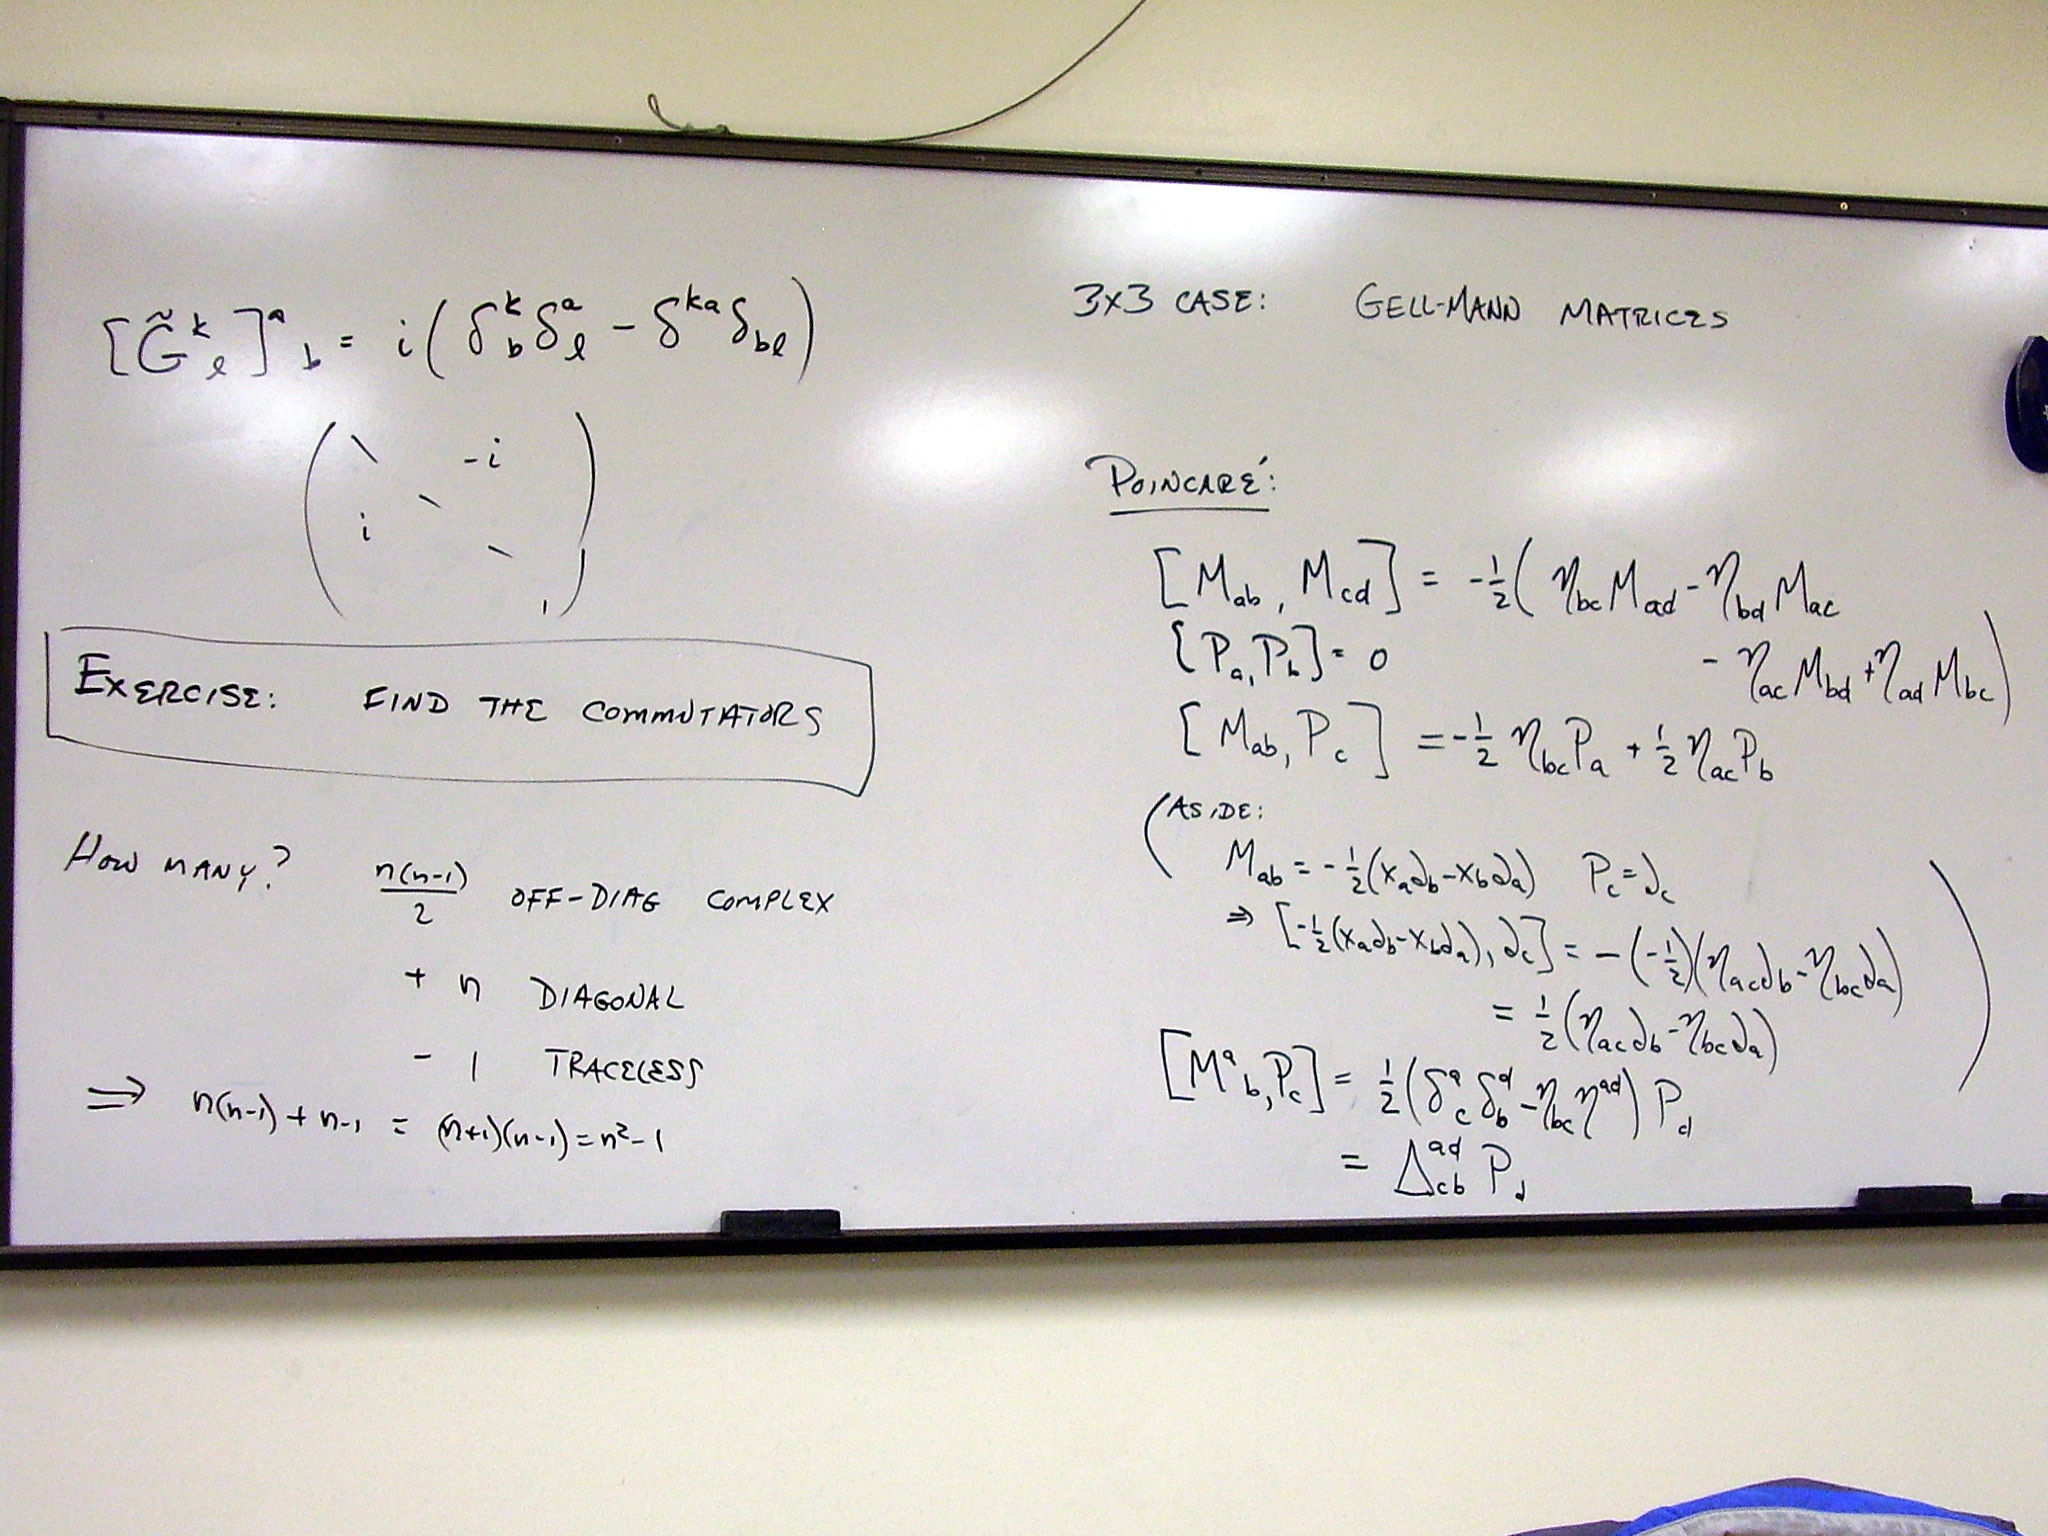 [G̃ᵏₗ]ᵃ_b = i(δᵏ_b δᵃₗ − δᵏᵃ δ_bl)
( \ -i
i \
\ )
EXERCISE: FIND THE COMMUTATORS
HOW MANY? n(n-1)/2 OFF-DIAG COMPLEX
+ n DIAGONAL
- 1 TRACELESS
⇒ n(n-1) + n-1 = (n+1)(n-1) = n²-1
3x3 CASE: GELL-MANN MATRICES
POINCARÉ:
[M_ab, M_cd] = -½( η_bc M_ad - η_bd M_ac
- η_ac M_bd + η_ad M_bc)
[P_a, P_b] = 0
[M_ab, P_c] = -½ η_bc P_a + ½ η_ac P_b
(ASIDE:
M_ab = -½(x_a∂_b - x_b∂_a) P_c = ∂_c
⇒ [-½(x_a∂_b - x_b∂_a), ∂_c] = -(-½)(η_ac∂_b - η_bc∂_a)
= ½(η_ac∂_b - η_bc∂_a) )
[Mᵃ_b, P_c] = ½(δᵃ_c δᵈ_b - η_bc ηᵃᵈ) P_d
= Δᵃᵈ_cb P_d